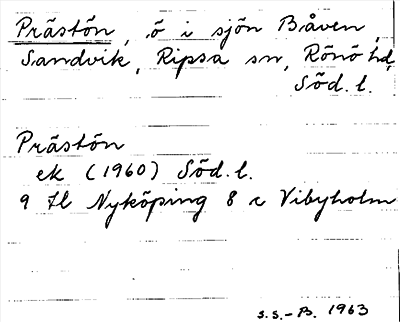 Prästön, ö i sjön Båven,
Sandvik, Ripsa sn, Rönö hd,
Söd. l.
Prästön
ek (1960) Söd. l.
9 H Nyköping 8 c Vibyholm
S.S.-B. 1963